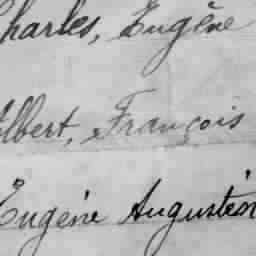 Charles, Eugène
Albert, François
Eugène Augustin